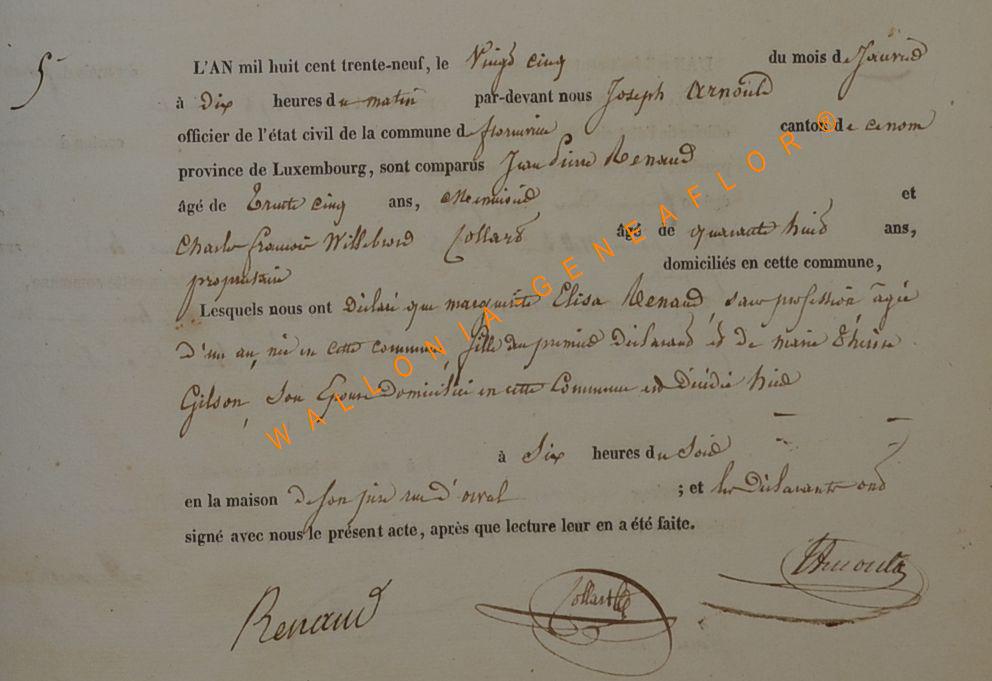 5
L'AN mil huit cent trente-neuf, le Vingt cinq du mois de Janvier
à Dix heures du matin par-devant nous Joseph Arnould
officier de l'état civil de la commune de florenville canton de idem
province de Luxembourg, sont comparus Jean Pierre Renaud
âgé de Trente cinq ans, Menuisier et
Charles françois Willebrord Collard âgé de quarante huit ans,
propriétaire domiciliés en cette commune,
Lesquels nous ont Déclaré que marguerite Elisa Renaud, sans profession âgée
d'un an, née en cette commune, fille du premier déclarant et de marie thérèse
Gilson, son Epouse Domiciliée en cette Commune est Décédée hier
à Six heures du Soir
en la maison de son père rue d'orval ; et les Déclarants ont
signé avec nous le présent acte, après que lecture leur en a été faite.
Renaud Collard JArnould
WALLONIA-GENEAFLOR ®